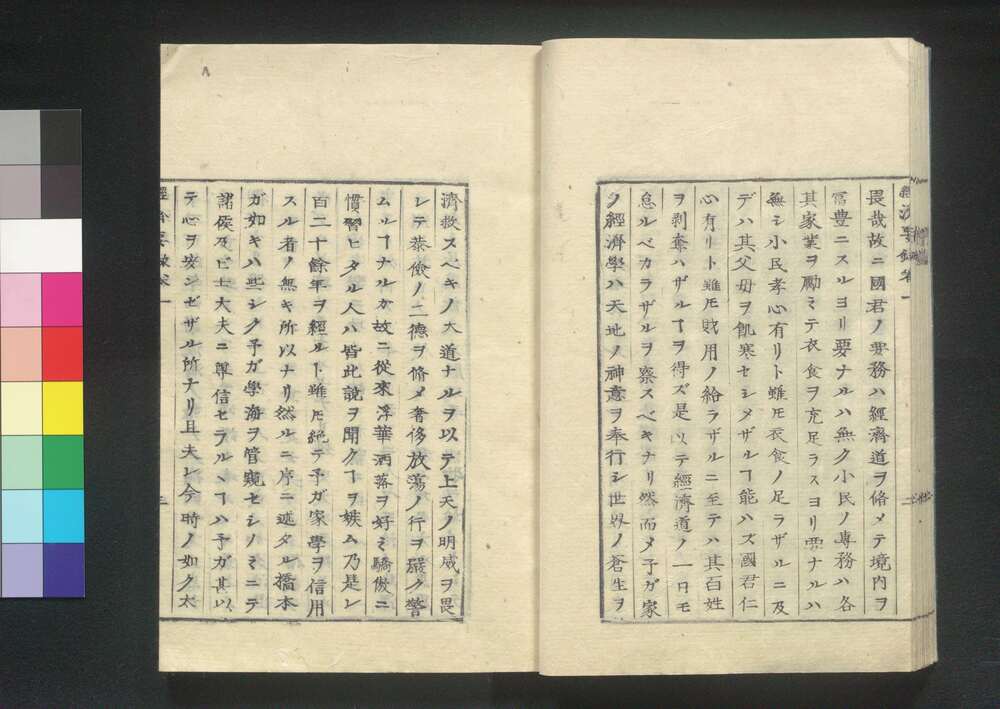 畏哉故ニ國君ノ要務ハ經濟道ヲ脩メテ境内ヲ
富豊ニスルヨリ要ナルハ無ク小民ノ專務ハ各
其家業ヲ勵ミテ衣食ヲ充足ラスヨリ要ナルハ
無シ小民孝心有リト雖モ衣食ノ足ラザルニ及
デハ其父母ヲ飢寒セシメザルヿ能ハズ國君仁
心有リト雖モ財用ノ給ラザルニ至テハ其百姓
ヲ剥奪ハザルヿヲ得ズ是以テ經濟道ノ一日モ
怠ルベカラザルヲ察スベキナリ然而メ予ガ家
ノ經濟學ハ天地ノ神意ヲ奉行シ世界ノ蒼生ヲ
濟救スベキノ大道ナルヲ以テ上天ノ明威ヲ畏
レテ恭儉ノ二德ヲ脩メ奢侈放蕩ノ行ヲ嚴ク警
ムルヿナルガ故ニ從來浮華洒落ヲ好ミ驕傲ニ
慣習ヒタル人ハ皆此說ヲ聞クヿヲ嫉ム乃是レ
百二十餘年ヲ經ルト雖モ絶テ予ガ家學ヲ信用
スル者ノ無キ所以ナリ然ルニ序ニ述タル橋本
ガ如キハ些シク予ガ學海ヲ管窺セシノミニテ
諸侯及ビ士大夫ニ尊信セラルヽヿハ予ガ甚以
テ心ヲ安ンゼザル所ナリ且夫レ今時ノ如ク太